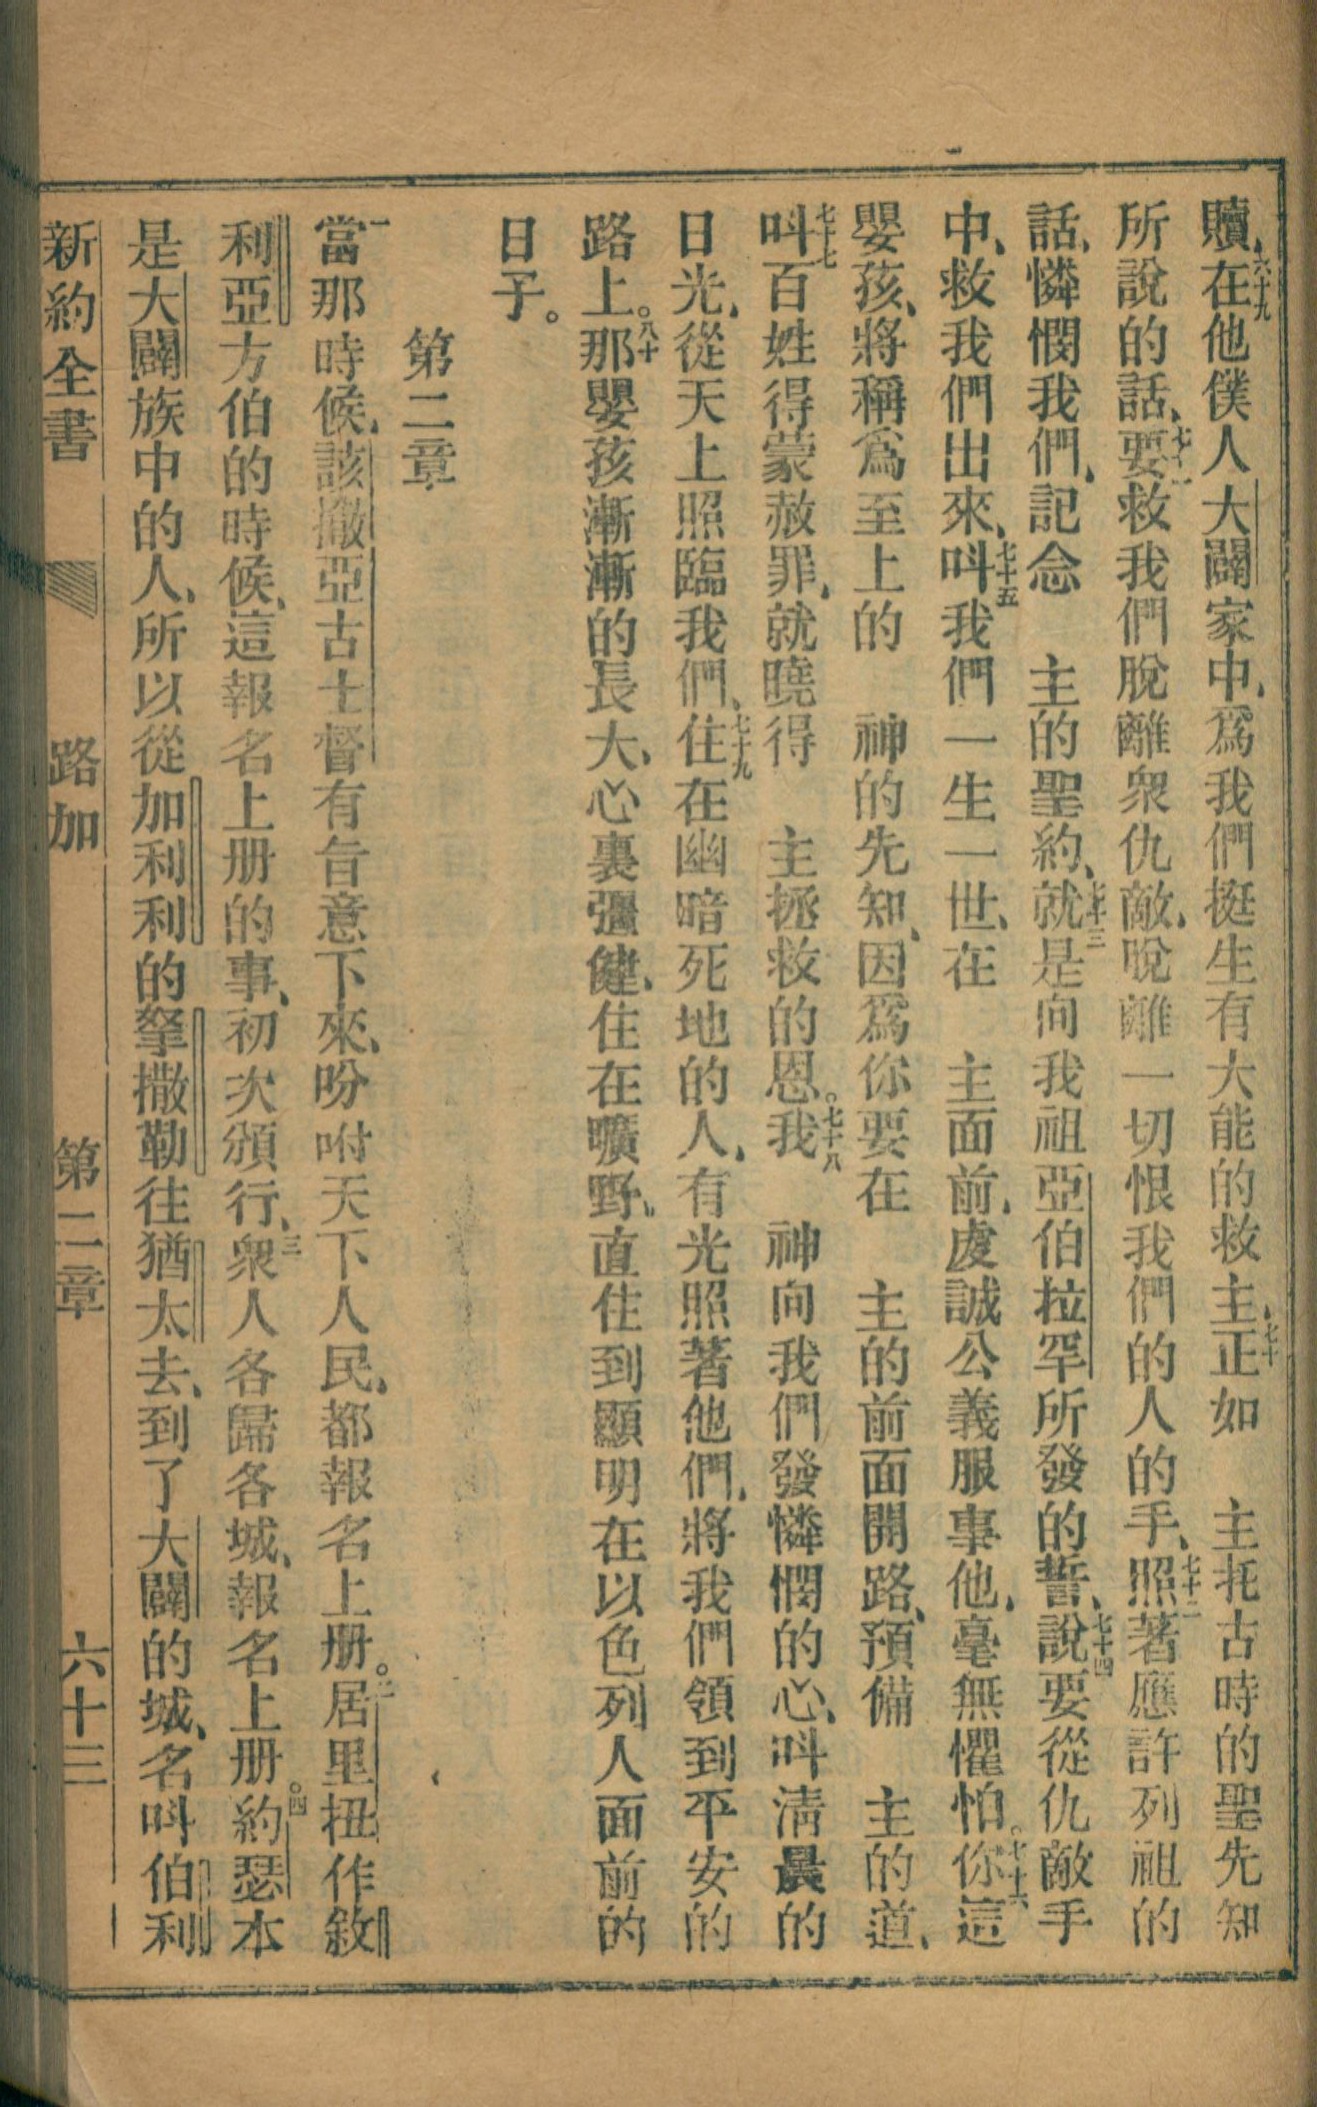 贖、六十九在他僕人大闢家中、爲我們挺生有大能的救主、七十正如　主托古時的聖先知
所說的話、七十一要救我們脫離衆仇敵、脫離一切恨我們的人的手、七十二照著應許列祖的
話、憐憫我們、記念　主的聖約、七十三就是向我祖亞伯拉罕所發的誓、七十四說要從仇敵手
中、救我們出來、七十五呌我們一生一世、在　主面前、虔誠公義服事他、毫無懼怕。七十六你這
嬰孩、將稱爲至上的　神的先知、因爲你要在　主的前面開路、預備　主的道、
七十七呌百姓得蒙赦罪、就曉得　主拯救的恩。七十八我　神向我們發憐憫的心、呌淸晨的
日光、從天上照臨我們、七十九住在幽暗死地的人、有光照著他們、將我們領到平安的
路上。八十那嬰孩漸漸的長大、心裏彊健、住在曠野、直住到顯明在以色列人面前的
日子。
第二章
一當那時候、該撒亞古士督有旨意下來、吩咐天下人民、都報名上册。二居里扭作敘
利亞方伯的時候、這報名上册的事、初次頒行、三衆人各歸各城、報名上册。四約瑟本
是大闢族中的人、所以從加利利的拏撒勒往猶太去、到了大闢的城、名呌伯利
新約全書　路加　第二章　六十三